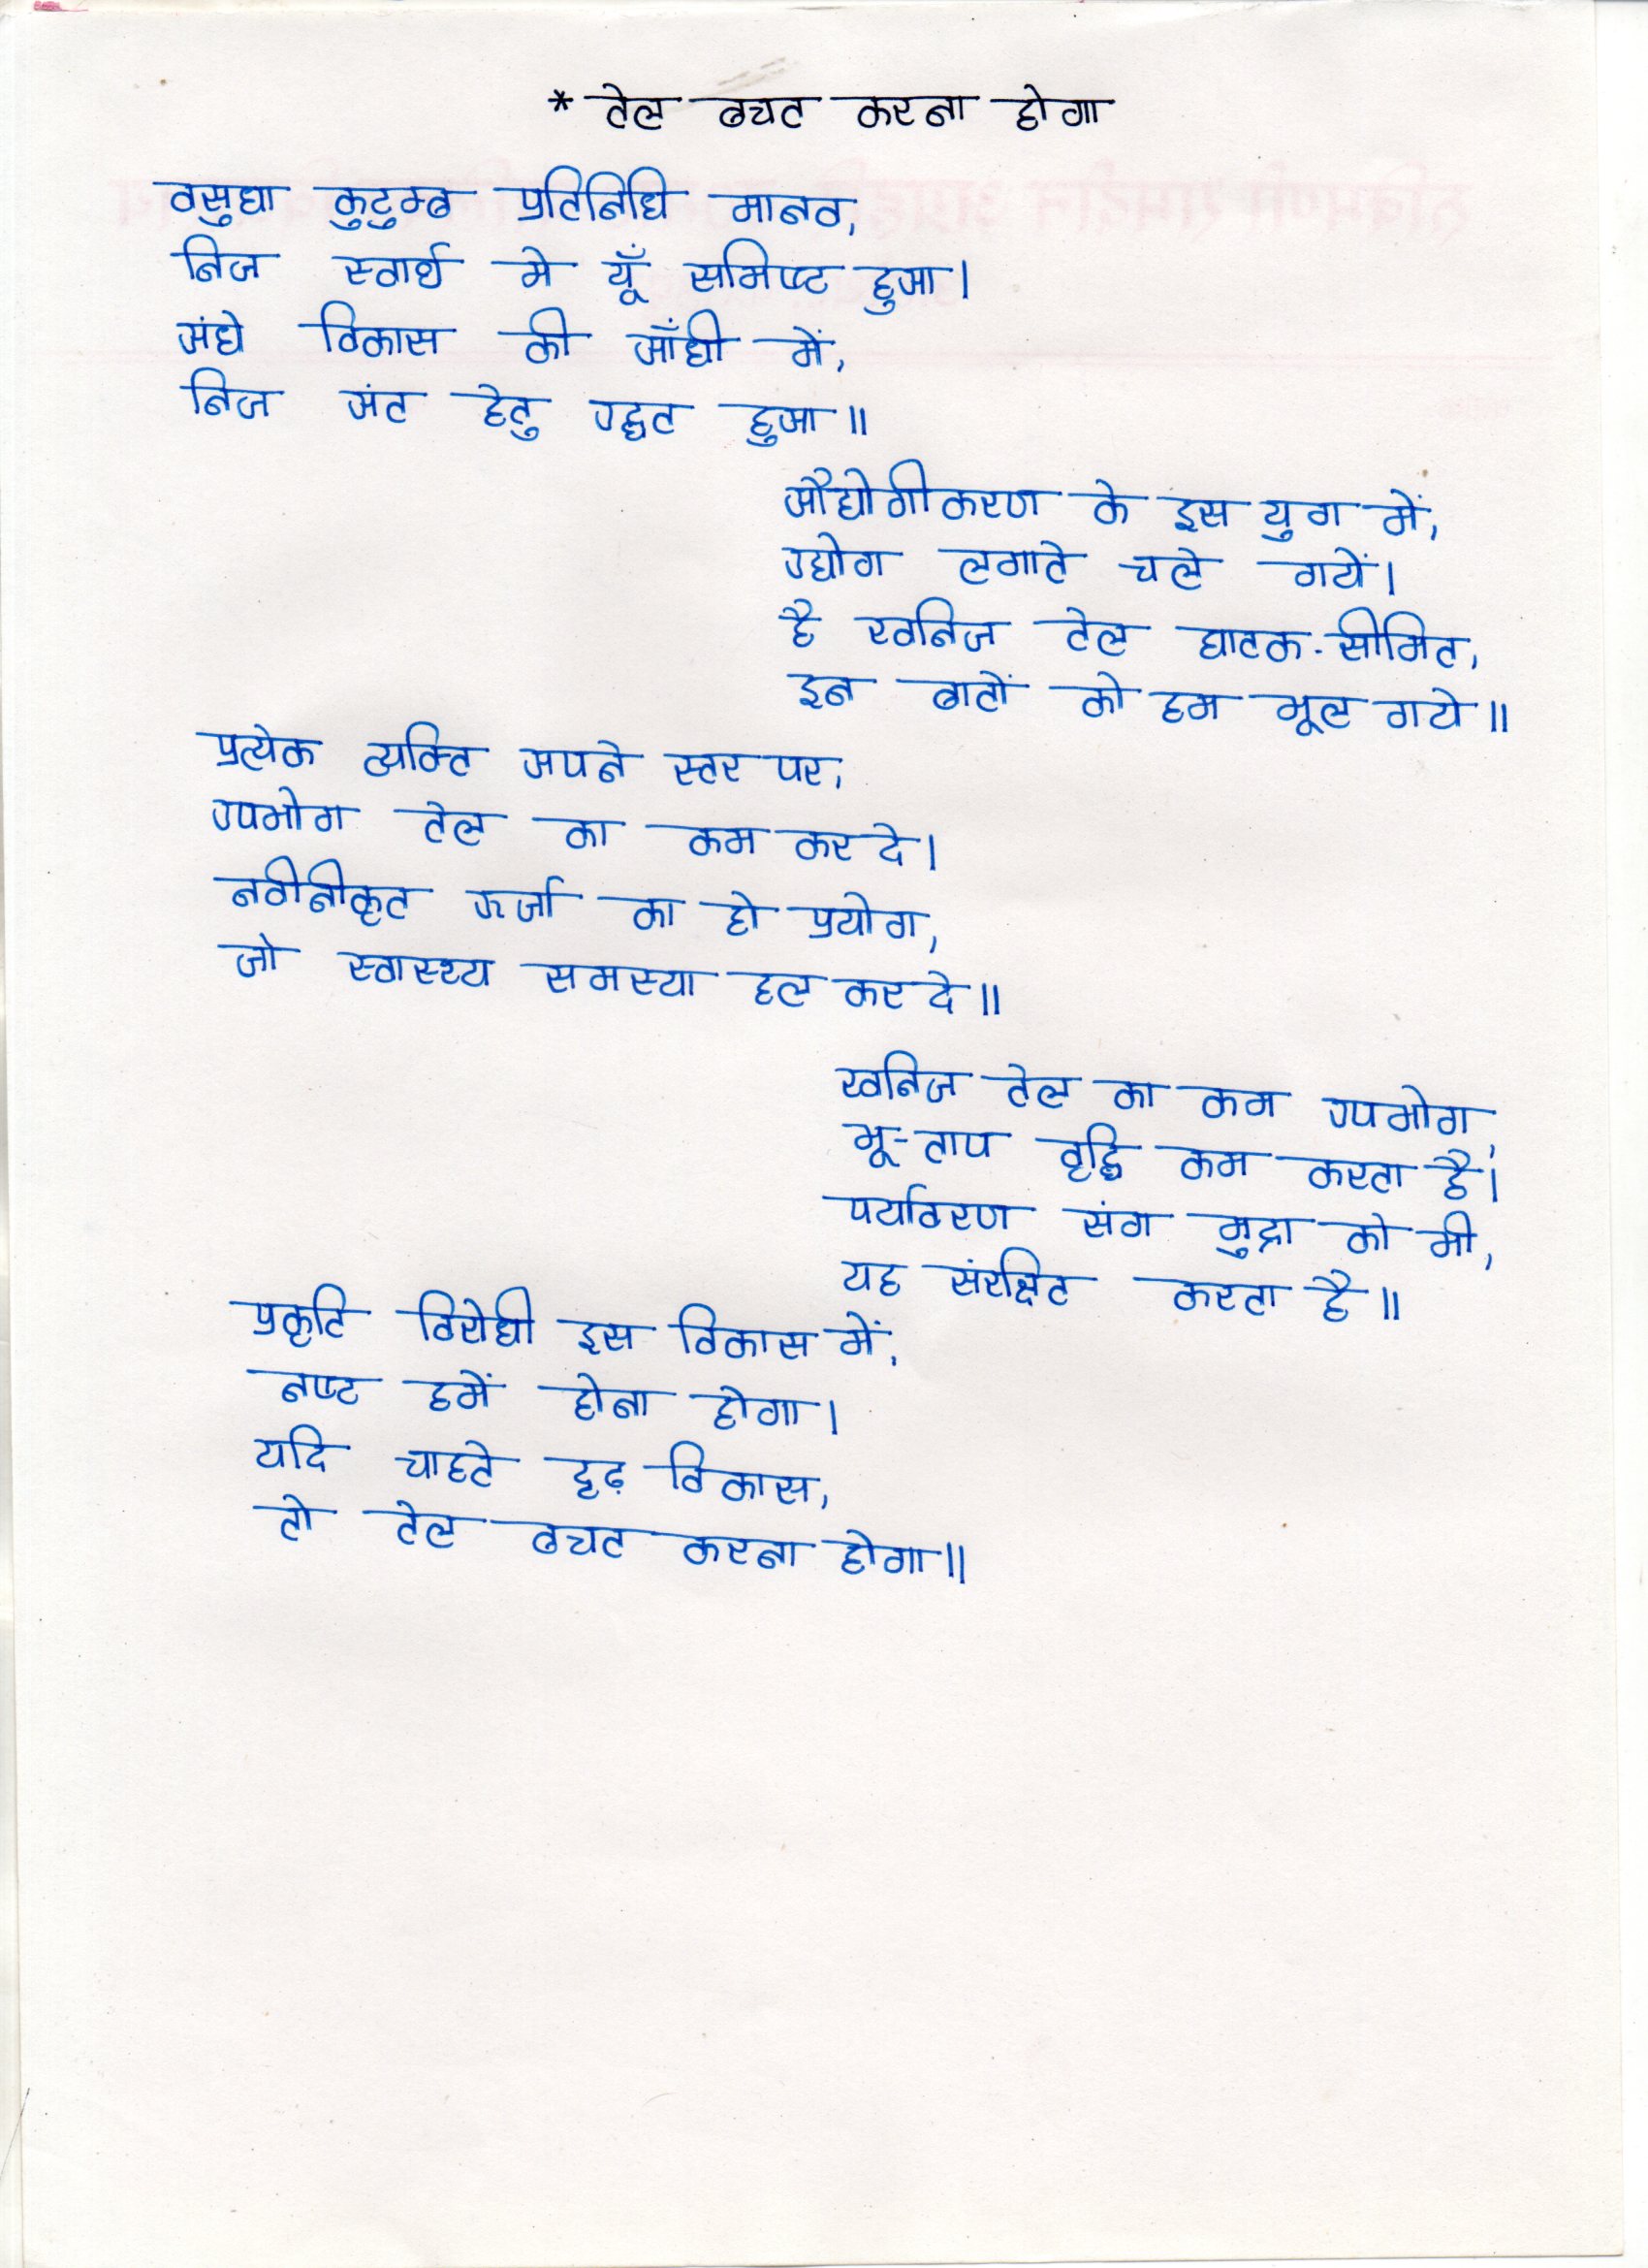 * तेल बचत करना होगा
वसुधा कुटुम्ब प्रतिनिधि मानव,
निज स्वार्थ मे यूँ समिष्ट हुआ।
अंधे विकास की आँधी में,
निज अंत हेतु उद्धत हुआ॥
औद्योगीकरण के इस युग में,
उद्योग लगाते चले गयें।
है खनिज तेल घातक-सीमित,
इन बातों को हम भूल गये॥
प्रत्येक व्यक्ति अपने स्तर पर,
उपभोग तेल का कम कर दे।
नवीनीकृत ऊर्जा का हो प्रयोग,
जो स्वास्थ्य समस्या हल कर दे॥
खनिज तेल का कम उपभोग,
भू-ताप वृद्धि कम करता है।
पर्यावरण संग मुद्रा को भी,
यह संरक्षित करता है॥
प्रकृति विरोधी इस विकास में,
नष्ट हमें होना होगा।
यदि चाहते दृढ़ विकास,
तो तेल बचत करना होगा॥